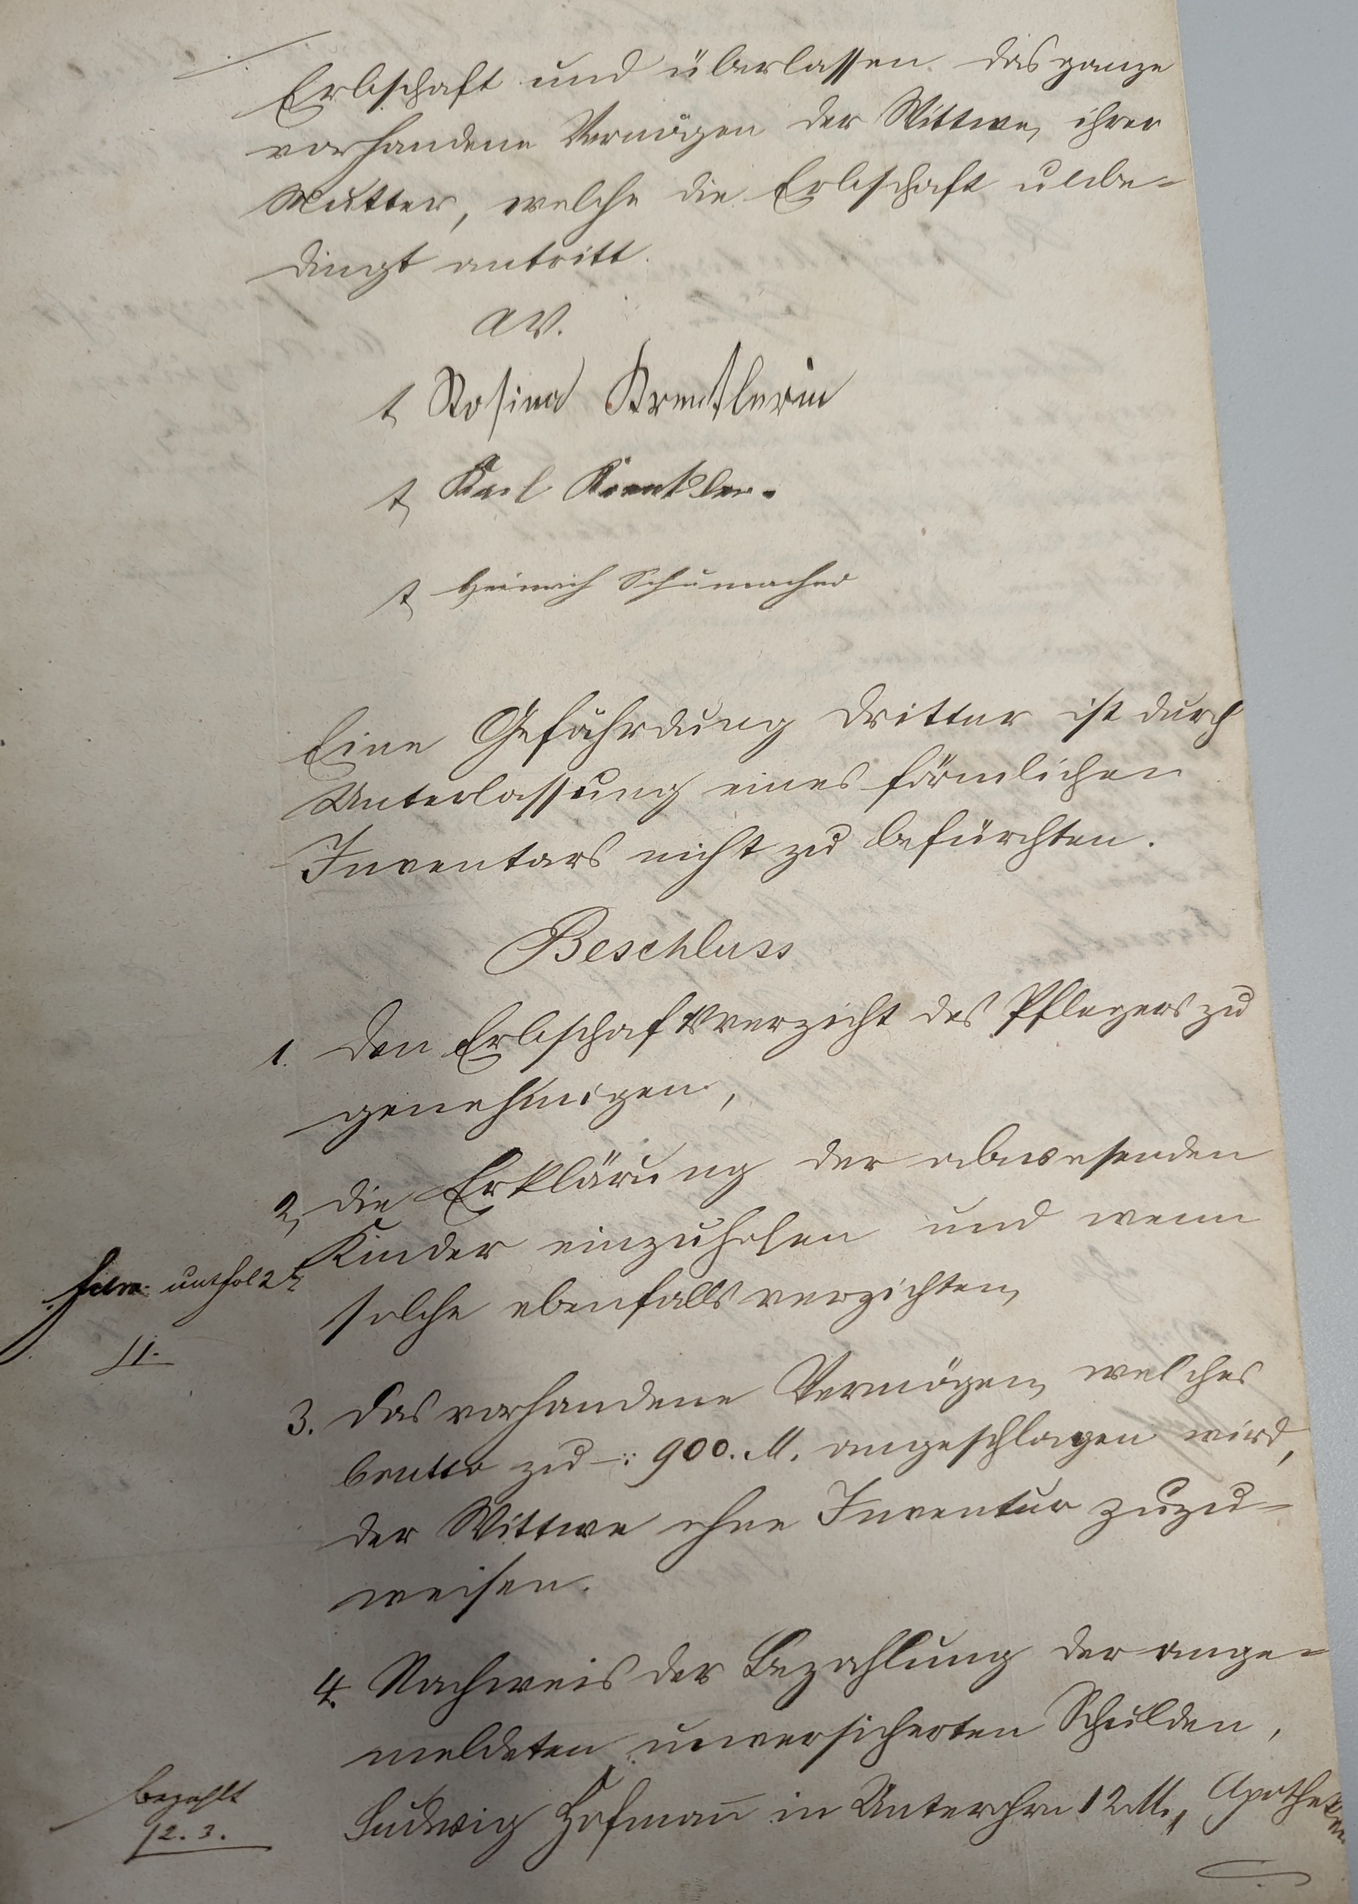 Erbschaft und überlassen das ganze
vorhandene Vermögen der Wittwe, ihrer
Mutter, welche die Erbschaft unbe-
dingt antritt.
av.
t. Rosina Krentlerin
t. Karl Krentler.
t. Heinrich Schumacher
Eine Gefährdung Dritter ist durch
Unterlassung eines förmlichen
Inventars nicht zu befürchten.
Beschluss
1. den Erbschaftsverzicht des Pflegers zu
genehmigen,
2, die Erklärung der abwesenden
Kinder einzuholen und wenn
solche ebenfalls verzichten,
unt fol 2
11.
3. das vorhandene Vermögen, welches
brutto zu -: 900. M. angeschlagen wird,
der Wittwe ohne Inventur zuzu-
weisen.
4. Nachweis der Bezahlung der ange-
meldeten unversicherten Schulden,
bezahlt
12. 3.
Ludwig Hofman̄ in 12 M., Apotheker